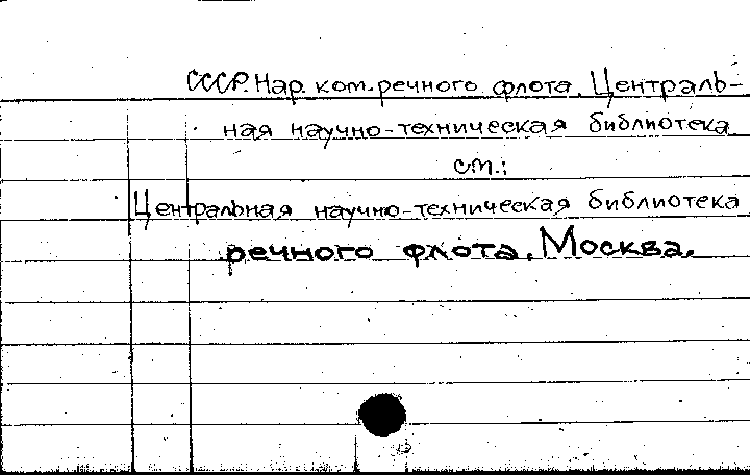 СССР. Нар. ком. речного флота. Централь-
ная научно-техническая библиотека
см.:
Центральная научно-техническая библиотека
речного флота. Москва.